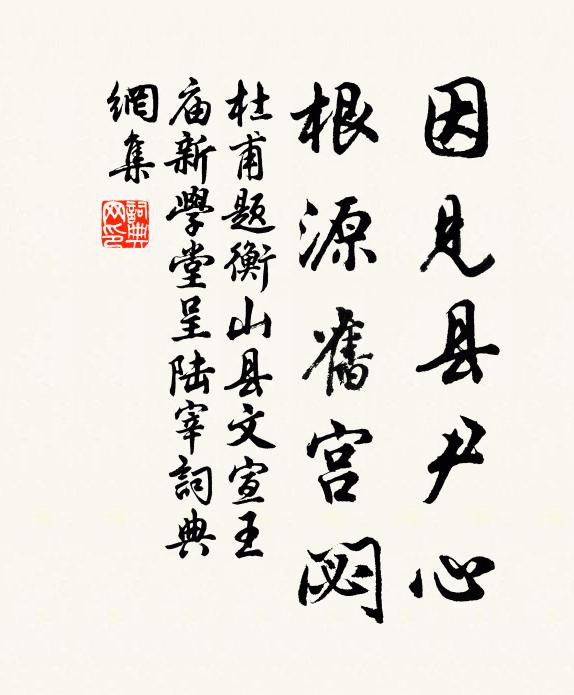 因见县尹心
根源旧宫閟
杜甫题衡山县文宣王
庙新学堂呈陆宰词典
网集
词典网印